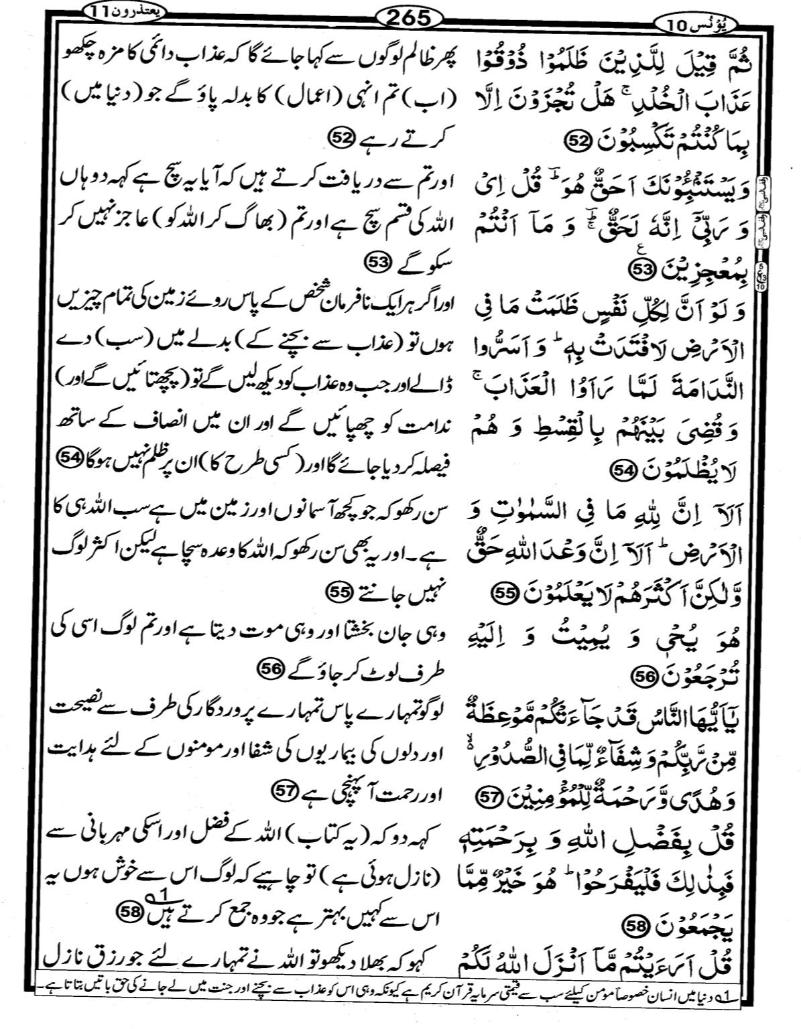 یعتذرون 11
265
یونس 10
ثُمَّ قِيْلَ لِلَّذِيْنَ ظَلَمُوْا ذُوْقُوْا
عَذَابَ الْخُلْدِ ۚ هَلْ تُجْزَوْنَ اِلَّا
بِمَا كُنْتُمْ تَكْسِبُوْنَ 52
وَيَسْتَنْۢبِـُٔوْنَكَ اَحَقٌّ هُوَ ؕ قُلْ اِىْ
وَ رَبِّيْۤ اِنَّهٗ لَحَقٌّ ؕۚ وَ مَاۤ اَنْتُمْ
بِمُعْجِزِيْنَ 53
وَ لَوْ اَنَّ لِكُلِّ نَفْسٍ ظَلَمَتْ مَا فِى
الْاَرْضِ لَافْتَدَتْ بِهٖ ؕ وَ اَسَرُّوا
النَّدَامَةَ لَمَّا رَاَوُا الْعَذَابَ ۚ
وَ قُضِىَ بَيْنَهُمْ بِالْقِسْطِ وَ هُمْ
لَا يُظْلَمُوْنَ 54
اَلَاۤ اِنَّ لِلّٰهِ مَا فِى السَّمٰوٰتِ وَ
الْاَرْضِ ؕ اَلَاۤ اِنَّ وَعْدَ اللّٰهِ حَقٌّ
وَّلٰكِنَّ اَكْثَرَهُمْ لَا يَعْلَمُوْنَ 55
هُوَ يُحْىٖ وَ يُمِيْتُ وَ اِلَيْهِ
تُرْجَعُوْنَ 56
يٰۤاَيُّهَا النَّاسُ قَدْ جَآءَتْكُمْ مَّوْعِظَةٌ
مِّنْ رَّبِّكُمْ وَ شِفَآءٌ لِّمَا فِى الصُّدُوْرِ ۙ
وَ هُدًى وَّ رَحْمَةٌ لِّلْمُؤْمِنِيْنَ 57
قُلْ بِفَضْلِ اللّٰهِ وَ بِرَحْمَتِهٖ
فَبِذٰلِكَ فَلْيَفْرَحُوْا ؕ هُوَ خَيْرٌ مِّمَّا
يَجْمَعُوْنَ 58
قُلْ اَرَءَيْتُمْ مَّاۤ اَنْزَلَ اللّٰهُ لَكُمْ
پھر ظالم لوگوں سے کہا جائے گا کہ عذاب دائمی کا مزہ چکھو
(اب) تم انہی (اعمال) کا بدلہ پاؤ گے جو (دنیا میں)
کرتے رہے 52
اور تم سے دریافت کرتے ہیں کہ آیا یہ سچ ہے کہہ دو ہاں
اللہ کی قسم سچ ہے اور تم (بھاگ کر اللہ کو) عاجز نہیں کر
سکو گے 53
اور اگر ہر ایک نافرمان شخص کے پاس روئے زمین کی تمام چیزیں
ہوں تو (عذاب سے بچنے کے) بدلے میں (سب) دے
ڈالے اور جب وہ عذاب کو دیکھ لیں گے تو (پچھتائیں گے اور)
ندامت کو چھپائیں گے اور ان میں انصاف کے ساتھ
فیصلہ کر دیا جائے گا اور (کسی طرح کا) ان پر ظلم نہیں ہو گا 54
سن رکھو کہ جو کچھ آسمانوں اور زمین میں ہے سب اللہ ہی کا
ہے۔ اور یہ بھی سن رکھو کہ اللہ کا وعدہ سچا ہے لیکن اکثر لوگ
نہیں جانتے 55
وہی جان بخشتا اور وہی موت دیتا ہے اور تم لوگ اسی کی
طرف لوٹ کر جاؤ گے 56
لوگو تمہارے پاس تمہارے پروردگار کی طرف سے نصیحت
اور دلوں کی بیماریوں کی شفا اور مومنوں کے لئے ہدایت
اور رحمت آ پہنچی ہے 57
کہہ دو کہ (یہ کتاب) اللہ کے فضل اور اسکی مہربانی سے
(نازل ہوئی ہے) تو چاہیے کہ لوگ اس سے خوش ہوں یہ
اس سے کہیں بہتر ہے جو وہ جمع کرتے ہیں 1؎ 58
کہو کہ بھلا دیکھو تو اللہ نے تمہارے لئے جو رزق نازل
1؎ دنیا میں انسان خصوصاً مؤمن کیلئے سب سے قیمتی سرمایہ قرآن کریم ہے کیونکہ وہی اس کو عذاب سے بچنے اور جنت میں لے جانے کی حق باتیں بتاتا ہے۔